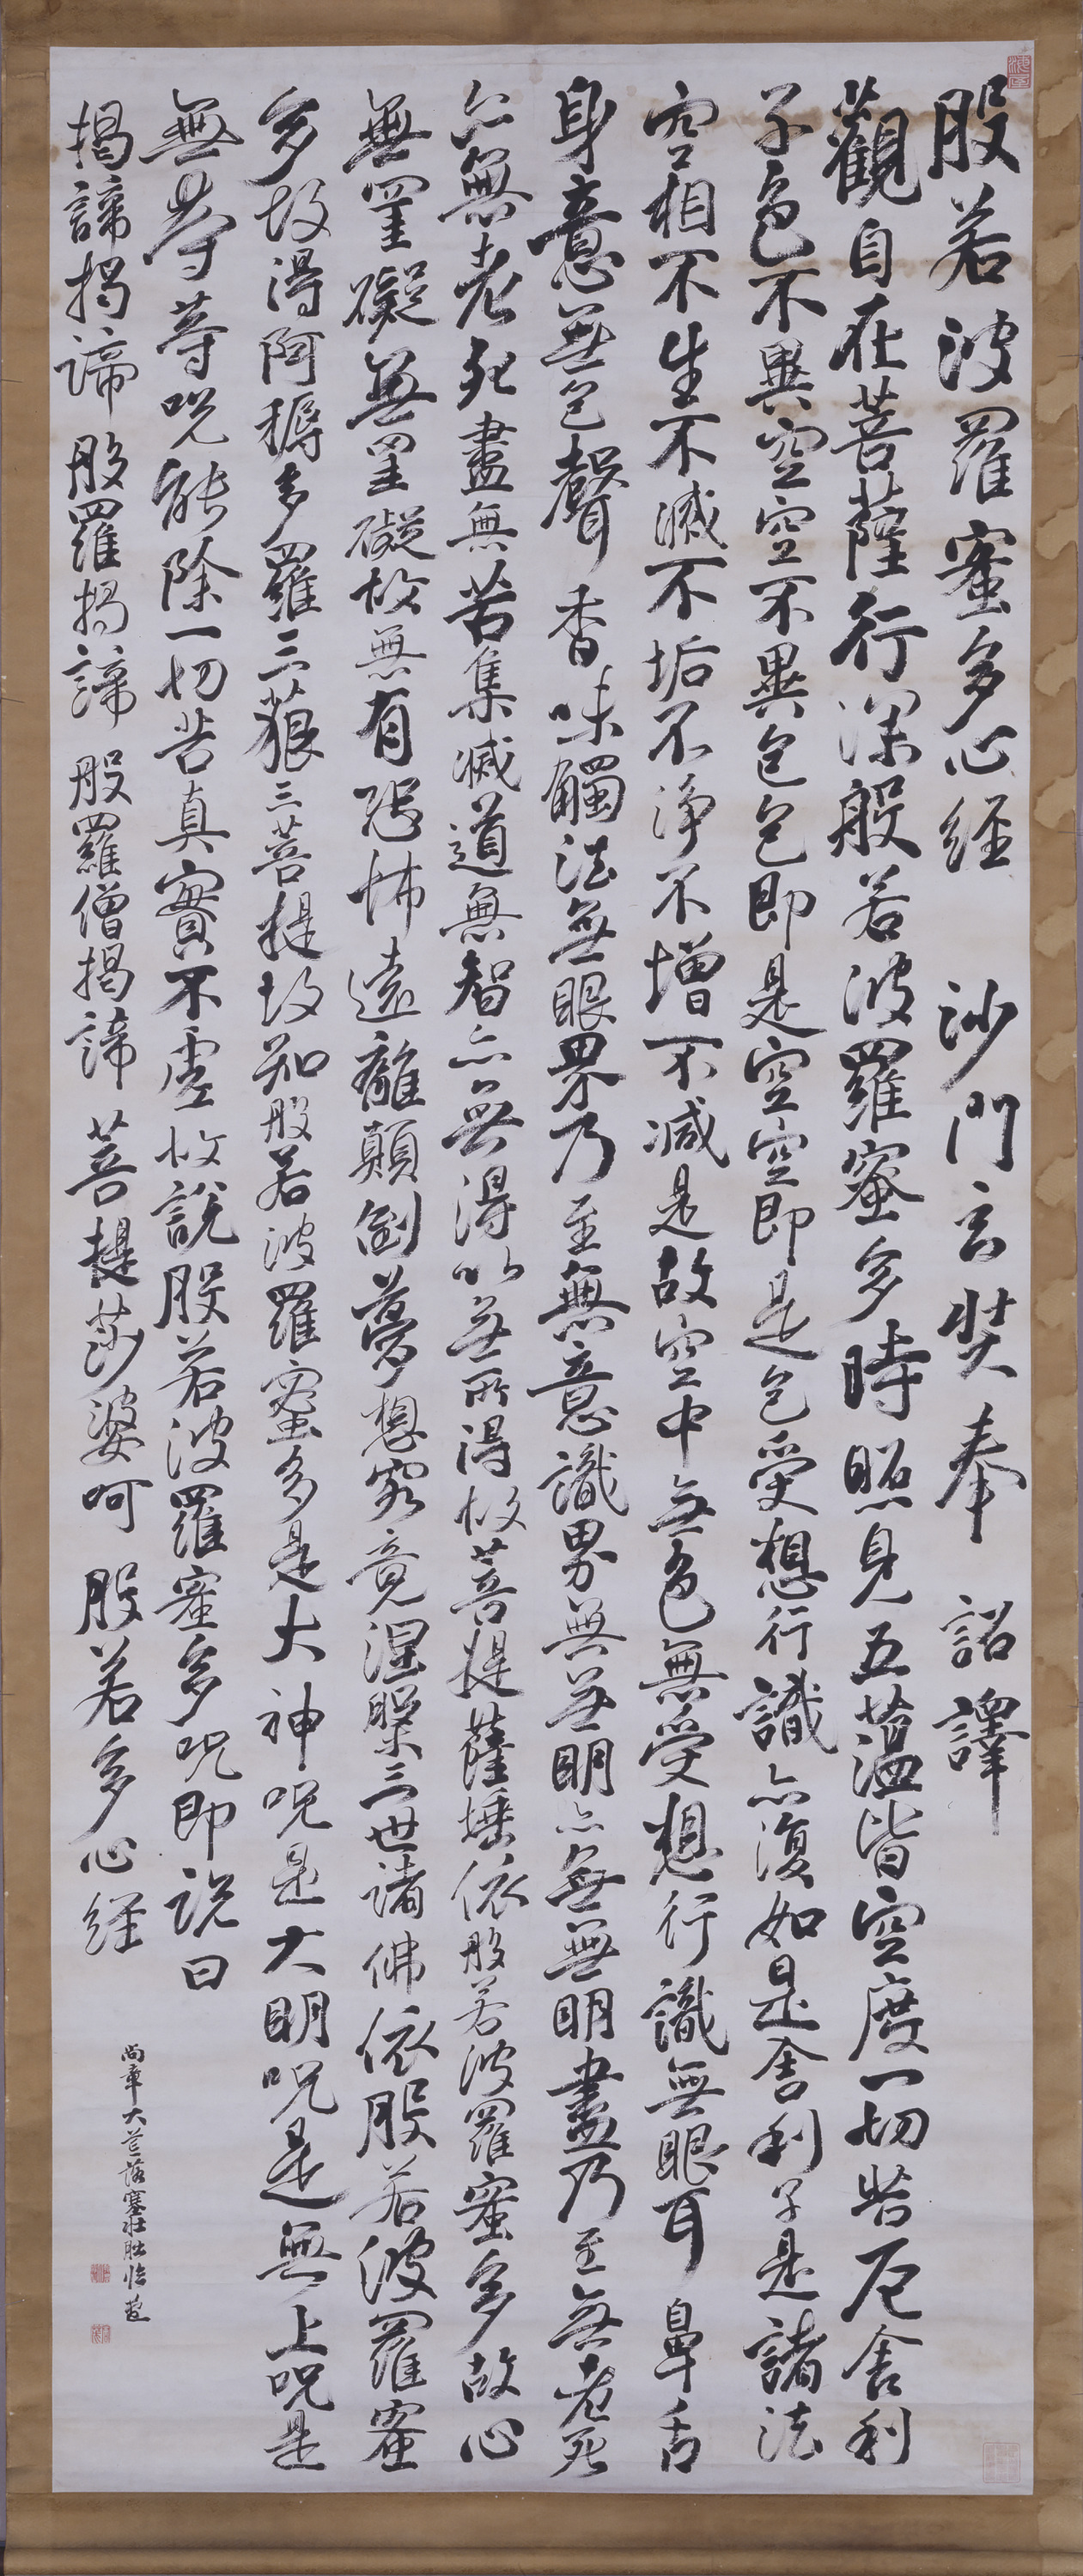 般若波羅蜜多心經 沙門玄奘奉 詔譯
觀自在菩薩行深般若波羅蜜多時照見五蘊皆空度一切苦厄舍利
子色不異空空不異色色即是空空即是色受想行識亦復如是舍利子是諸法
空相不生不滅不垢不淨不增不減是故空中無色無受想行識無眼耳鼻舌
身意無色聲香味觸法無眼界乃至無意識界無無明亦無無明盡乃至無老死
亦無老死盡無苦集滅道無智亦無得以無所得故菩提薩埵依般若波羅蜜多故心
無罣礙無罣礙故無有恐怖遠離顛倒夢想究竟涅槃三世諸佛依般若波羅蜜
多故得阿耨多羅三藐三菩提故知般若波羅蜜多是大神呪是大明呪是無上呪是
無等等呪能除一切苦真實不虛故說般若波羅蜜多呪即説曰
揭諦揭諦 般羅揭諦 般羅僧揭諦 菩提莎婆呵 般若多心經
尚章大荒落